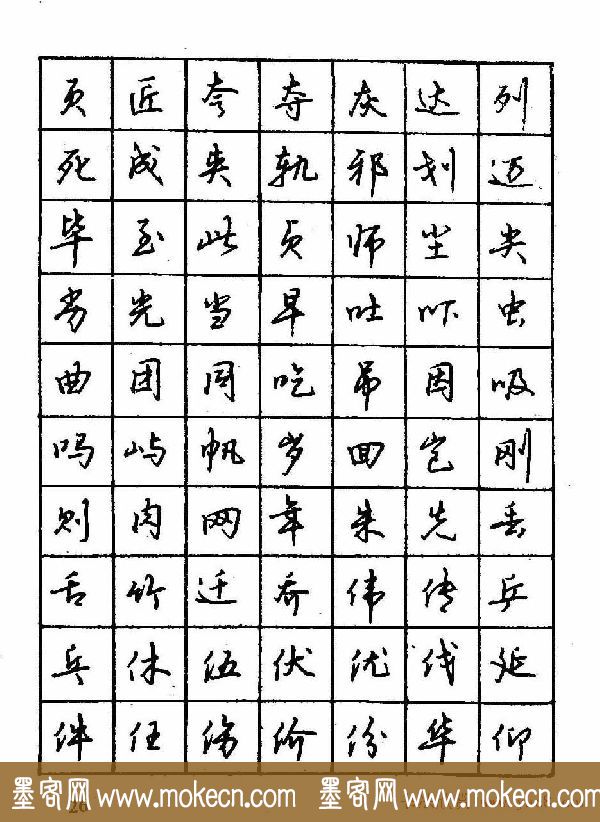 页匠夸夺灰达列
死成夹轨邪划迈
毕至此贞师尘尖
劣光当早吐吓虫
曲团同吃吊因吸
吗屿帆岁回岂刚
则肉网年朱先丢
舌竹迁乔伟传乒
乓休伍伏优伐延
件任伤价份华仰
墨客网 www.mokecn.com 墨客网 www.mokecn.com
26